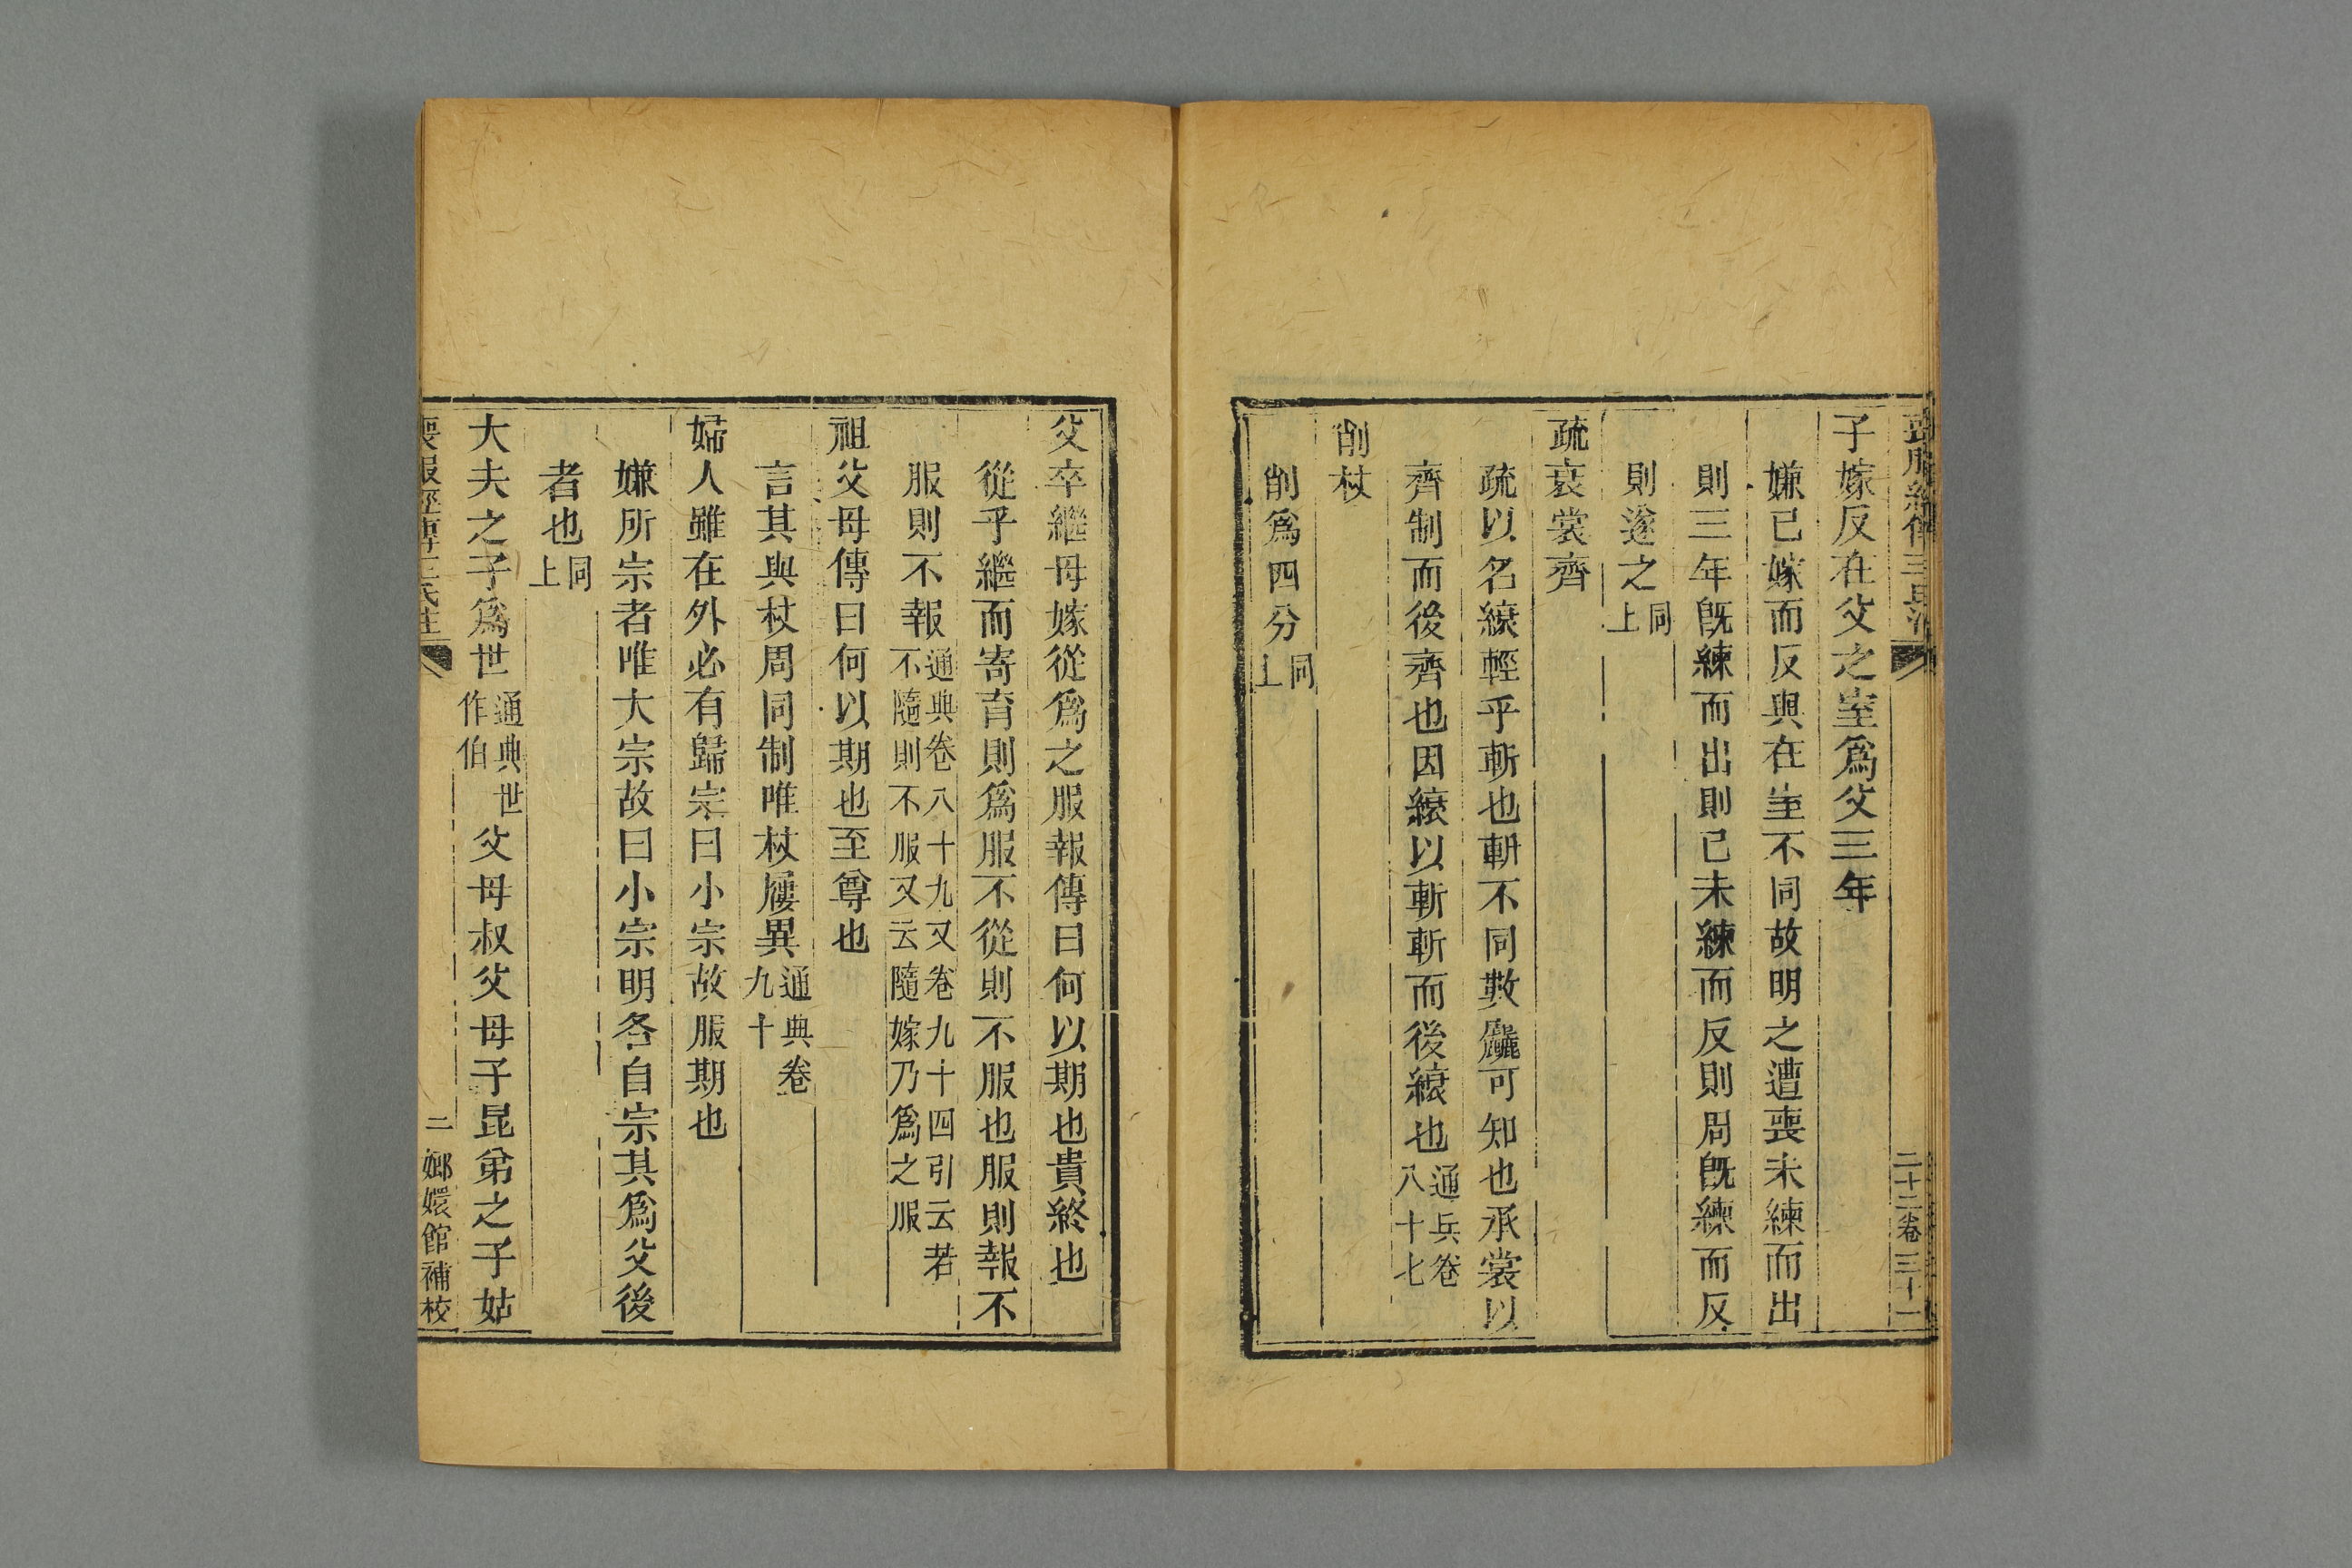 喪服經傳王氏注
二十二卷三十一
子嫁反在父之室爲父三年
嫌已嫁而反與在室不同故明之遭喪未練而出
則三年旣練而出則已未練而反則周旣練而反
則遂之同上
疏衰裳齊
疏以名縗輕乎斬也斬不同數麤可知也承裳以
齊制而後齊也因縗以斬斬而後縗也通典卷八十七
削杖
削爲四分同上
父卒繼母嫁從爲之服報傳曰何以期也貴終也
從乎繼而寄育則爲服不從則不服也服則報不
服則不報通典卷八十九又卷九十四引云若不隨則不服又云隨嫁乃爲之服
祖父母傳曰何以期也至尊也
言其與杖周同制唯杖屨異通典卷九十
婦人雖在外必有歸宗曰小宗故服期也
嫌所宗者唯大宗故曰小宗明各自宗其爲父後
者也同上
大夫之子爲世通典世作伯父母叔父母子昆弟之子姑
喪服經傳王氏注
二
嫏嬛館補校